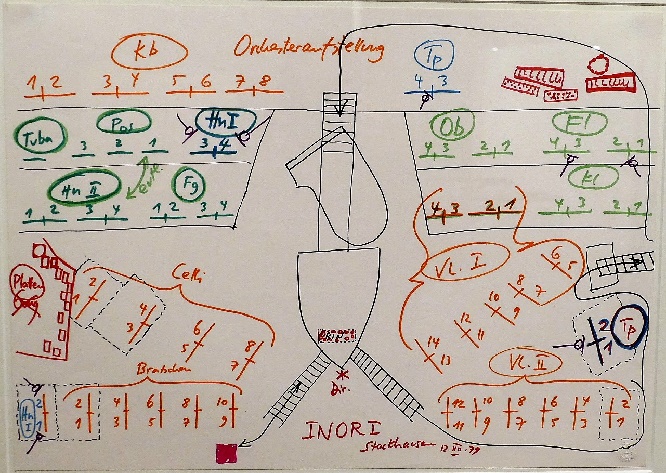 Kb
Orchesteraufstellung
Tp
1 2 3 4 5 6 7 8
4 3
Tuba
Pos
Hn I
3 2 1
3 4
Ob
Fl
4 3 2 1
4 3 2 1
Hn II
Fg
1 2 3 4
1 2 3 4
Kl
4 3 2 1
4 3 2 1
Vl. I
6 5
8 7
10 9
12 11
14 13
Platten
Celli
2 1
4 3
6 5
8 7
Tp
2 1
Bratschen
Hn I
2 1
2 1
4 3
6 5
8 7
10 9
Dir.
Vl. II
12 11
10 9
8 7
6 5
4 3
2 1
INORI
Stockhausen